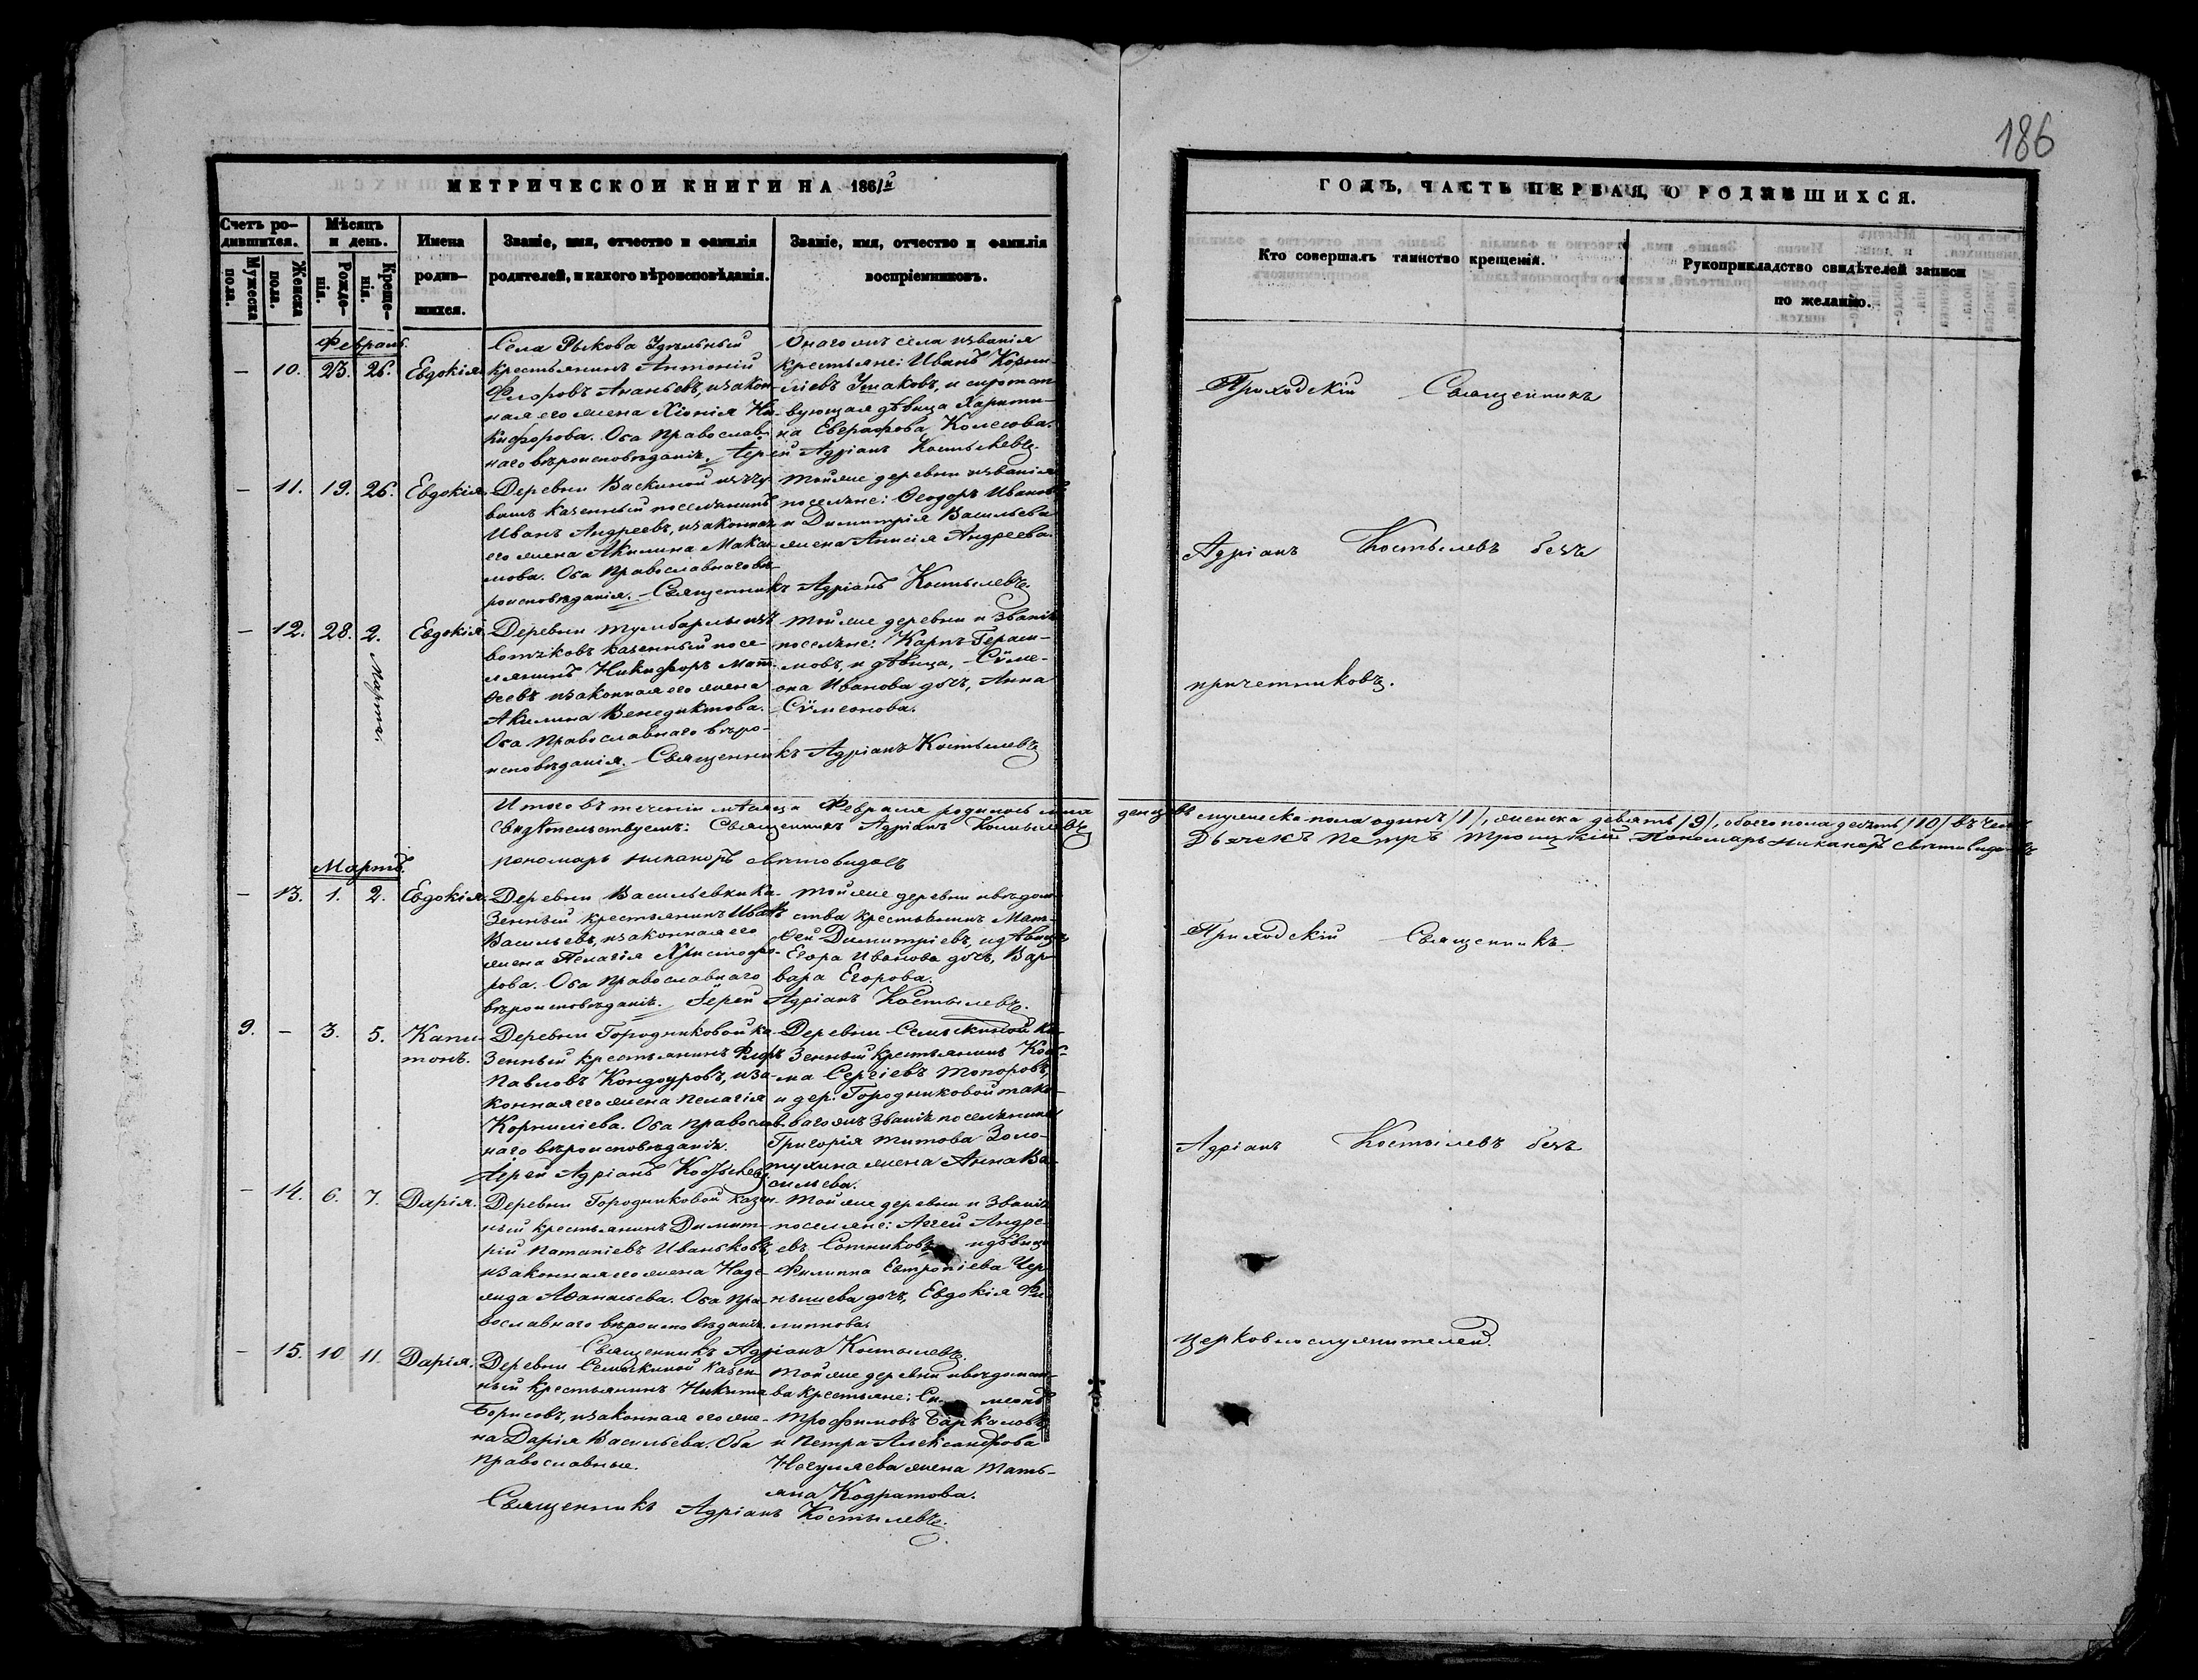 186
МЕТРИЧЕСКОЙ КНИГИ НА 1861й
ГОДЪ, ЧАСТЬ ПЕРВАЯ, О РОДИВШИХСЯ.
Счетъ ро-
дившихся.
Мужеска
пола.
Женска
пола.
Мѣсяцъ
и день.
Рожде-
нія.
Креще-
нія.
Имена
родив-
шихся.
Званіе, имя, отчество и фамилія
родителей, и какого вѣроисповѣданія.
Званіе, имя, отчество и фамилія
воспріемниковъ.
Кто совершалъ таинство крещенія.
Рукоприкладство свидѣтелей записи
по желанію.
Февраль.
— 10. 23. 26. Евдокія.
Села Рыкова Удѣльный
крестьянинъ Антоній
Флоровъ Ананьевъ, и закон-
ная его жена Хіонія Ни-
кифорова. Оба православ-
наго вѣроисповѣданія. Іерей Адріанъ Костылевъ.
Онаго жъ села и званія
крестьяне: Иванъ Корни-
ліевъ Ушаковъ, и сиротст-
вующая дѣвица Харити-
на Еверафова Колесова.
— 11. 19. 26. Евдокія.
Деревни Васкиной изъ чу-
вашъ казенный поселянинъ
Иванъ Андреевъ, и законная
его жена Акилина Мака-
мова. Оба православнаго вѣ-
роисповѣданія. Священникъ Адріанъ Костылевъ.
Той же деревни и званія
поселяне: Ѳеодоръ Ивановъ
и Димитрія Васильева
жена Анисія Андреева.
— 12. 28. 2. Марта. Евдокія.
Деревни Тумбарлы изъ
вотяковъ казенный посе-
лянинъ Никифоръ Мат-
ѳеевъ и законная его жена
Акилина Венедиктова.
Оба православнаго вѣро-
исповѣданія. Священникъ Адріанъ Костылевъ
Той же деревни и званія
поселяне: Карпъ Гераси-
мовъ, и дѣвица, Сѵме-
она Иванова дочь, Анна
Сѵмеонова.
Приходскій Священникъ
Адріанъ Костылевъ безъ
причетниковъ.
Итого въ теченіи мѣсяца Февраля родилось мла денцевъ мужеска пола одинъ /1/, женска девять /9/, обоего пола десять /10/ въ чемъ
свидѣтельствуемъ: Священникъ Адріанъ Костылевъ Дьячекъ Петръ Троицкій Пономарь Никаноръ Святовидовъ
пономарь Никаноръ Святовидовъ
Мартъ.
— 13. 1. 2. Евдокія.
Деревни Васильевки ка-
зенный крестьянинъ Иванъ
Васильевъ, и законная его
жена Пелагія Христофо-
рова. Оба православнаго
вѣроисповѣданія. Іерей Адріанъ Костылевъ.
Той же деревни и вѣдом-
ства крестьянинъ Мат-
ѳей Димитріевъ, и дѣвица
Егора Иванова дочь, Вар-
вара Егорова.
9. — 3. 5. Капи-
тонъ.
Деревни Городниковой ка-
зенный крестьянинъ Флоръ
Павловъ Кондоуровъ, и за-
конная его жена Пелагія
Корниліева. Оба православ-
наго вѣроисповѣданія.
Іерей Адріанъ Костылевъ
Деревни Семыкиной ка-
зенный крестьянинъ Коз-
ма Сергіевъ Топоровъ,
и дер. Городниковой тако-
ваго жъ званія поселянина
Григорія Титова Золо-
тухина жена Анна Ва-
сильева.
— 14. 6. 7. Дарія.
Деревни Городниковой казен-
ный крестьянинъ Димит-
рій Патапіевъ Иваньковъ,
и законная его жена Наде-
жда Аѳанасьева. Оба пра-
вославнаго вѣроисповѣданія.
Священникъ Адріанъ Костылевъ.
Той же деревни и званія
поселяне: Аггей Андре-
евъ Сотниковъ и дѣвица
Филиппа Евтропіева Чер-
нышева дочь, Евдокія Фи-
липпова.
— 15. 10. 11. Дарія.
Деревни Семыкиной казен-
ный крестьянинъ Никита
Борисовъ, и законная его же-
на Дарія Васильева. Оба
православные.
Священникъ Адріанъ Костылевъ.
Той же деревни и вѣдомст-
ва крестьяне: Си меонъ
Трофимовъ Баркаловъ,
и Петра Александрова
Ногуляева жена Тать-
яна Кодратова.
Приходскій Священникъ
Адріанъ Костылевъ безъ
церковнослужителей.